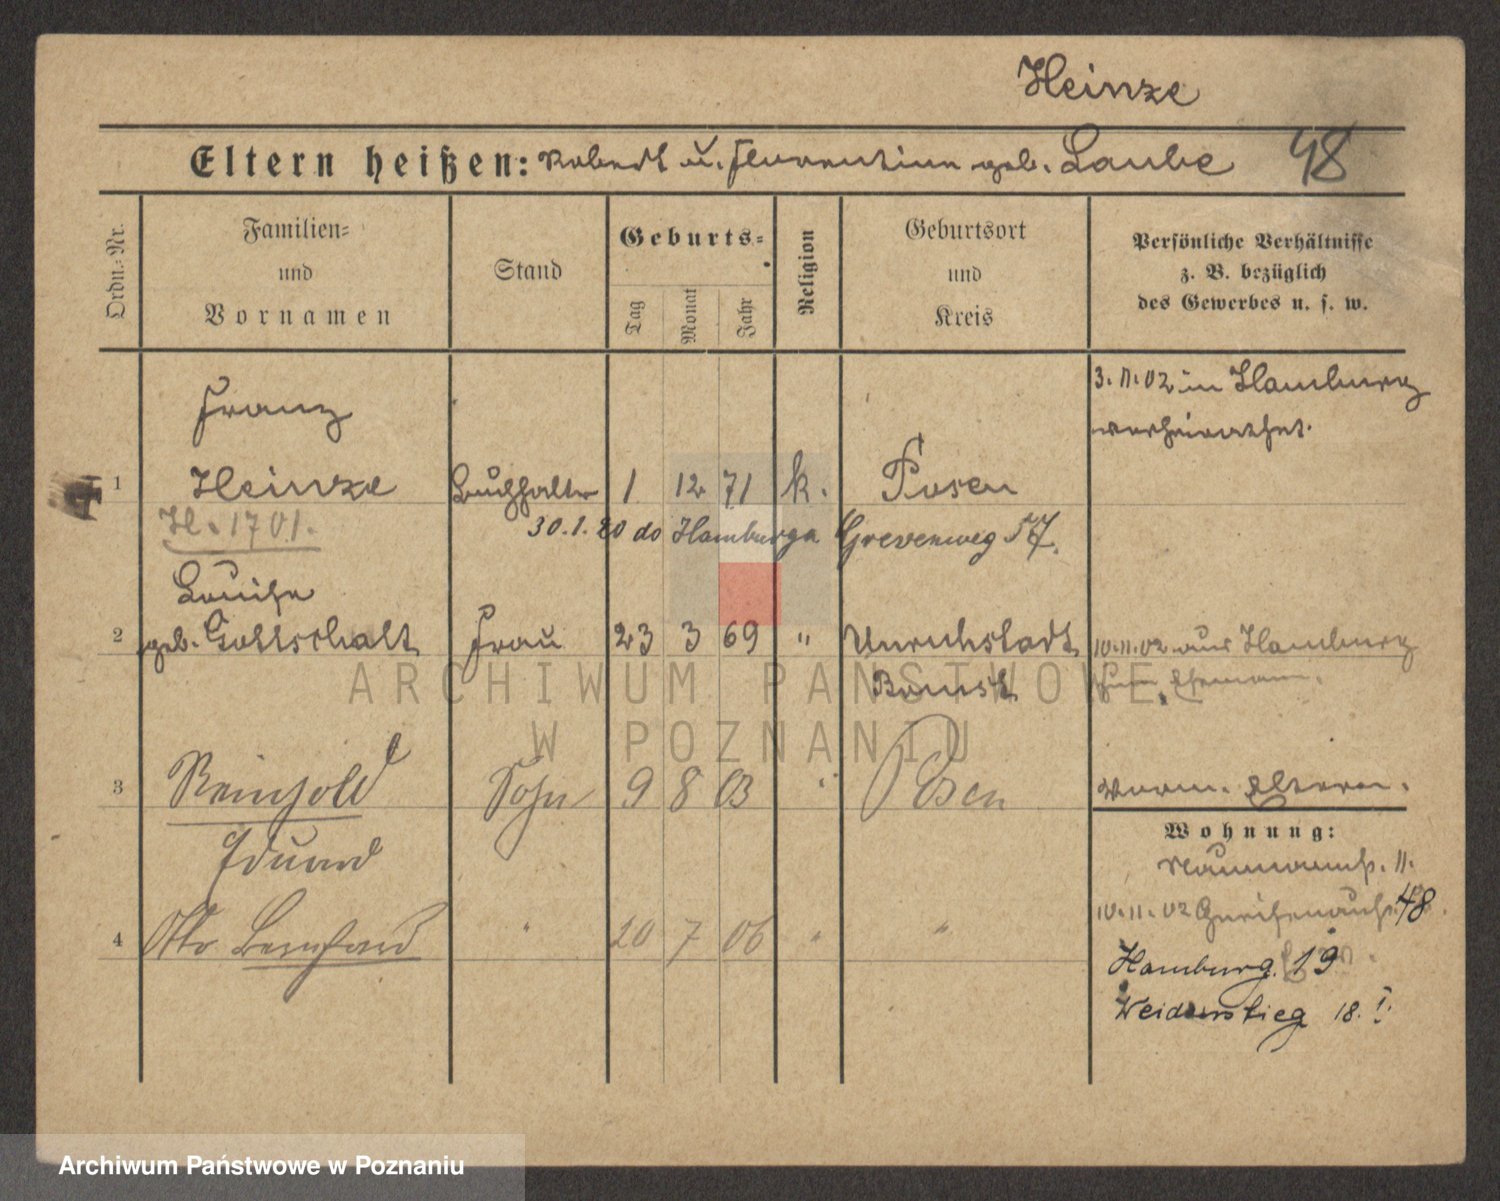 Heinze
Eltern heißen: Robert u. Florentine geb. Laube 48
Ordn.-Nr.
Familien-
und
Vornamen
Stand
Geburts-
Tag
Monat
Jahr
Religion
Geburtsort
und
Kreis
Persönliche Verhältnisse
z. B. bezüglich
des Gewerbes u. s. w.
Franz
3. 11. 02 in Hamburg
verheirathet.
1 Heinze Buchhalter 1 12 71 k. Posen
H. 1701.
30.1.20 do Hamburga Grevenweg 57.
Louise
2 geb. Gottschalk Frau 23 3 69 " Unruhstadt 10.11.02 aus Hamburg
Bomst zum Ehemann.
3 Reinhold Sohn 9 8 03 " Posen
Vorm. Eltern.
Wohnung:
Eduard
Naumannstr. 11.
10.11.02 Gneisenaustr. 48.
4 Otto Bernhard " 20 7 06 " "
Hamburg. 19
Weidenstieg 18. I.
ARCHIWUM PAŃSTWOWE
W POZNANIU
Archiwum Państwowe w Poznaniu